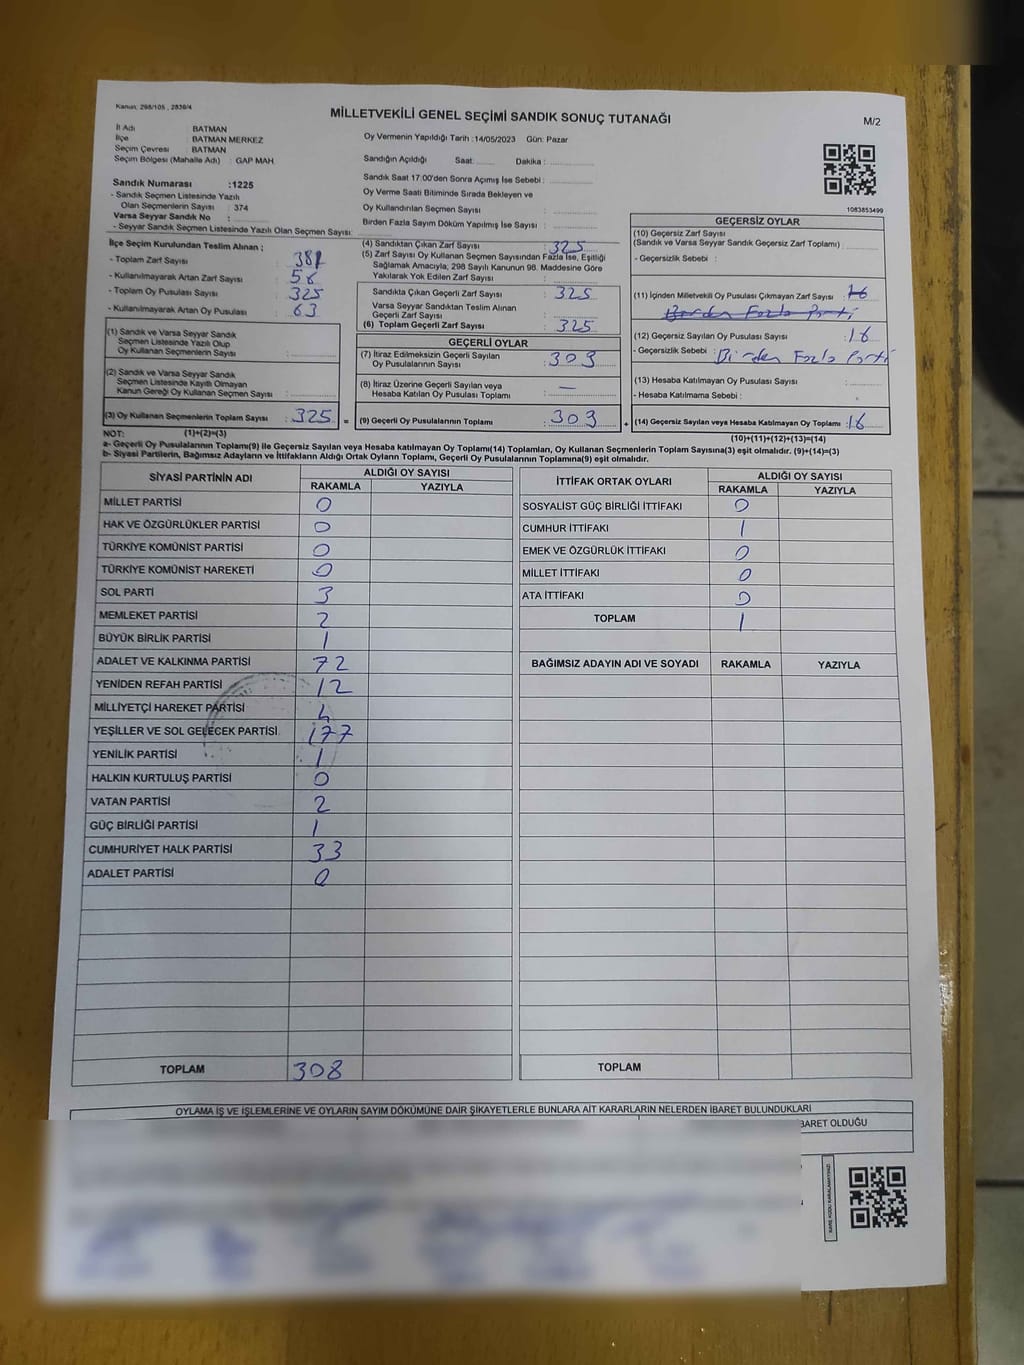 Kanun: 298/105 , 2839/4
MİLLETVEKİLİ GENEL SEÇİMİ SANDIK SONUÇ TUTANAĞI
M/2
İl Adı : BATMAN
İlçe : BATMAN MERKEZ
Seçim Çevresi : BATMAN
Seçim Bölgesi (Mahalle Adı) : GAP MAH.
Sandık Numarası :1225
- Sandık Seçmen Listesinde Yazılı
Olan Seçmenlerin Sayısı : 374
Varsa Seyyar Sandık No :
- Seyyar Sandık Seçmen Listesinde Yazılı Olan Seçmen Sayısı:
Oy Vermenin Yapıldığı Tarih :14/05/2023 Gün: Pazar
Sandığın Açıldığı Saat: Dakika :
Sandık Saat 17.00'den Sonra Açımış İse Sebebi :
Oy Verme Saati Bitiminde Sırada Bekleyen ve
Oy Kullandırılan Seçmen Sayısı :
Birden Fazla Sayım Döküm Yapılmış İse Sayısı :
1083853499
İlçe Seçim Kurulundan Teslim Alınan ;
- Toplam Zarf Sayısı : 381
- Kullanılmayarak Artan Zarf Sayısı : 56
- Toplam Oy Pusulası Sayısı : 325
- Kullanılmayarak Artan Oy Pusulası : 63
(1) Sandık ve Varsa Seyyar Sandık
Seçmen Listesinde Yazılı Olup
Oy Kullanan Seçmenlerin Sayısı :
(2) Sandık ve Varsa Seyyar Sandık
Seçmen Listesinde Kayıtlı Olmayan
Kanun Gereği Oy Kullanan Seçmen Sayısı :
(3) Oy Kullanan Seçmenlerin Toplam Sayısı : 325 =
(4) Sandıktan Çıkan Zarf Sayısı : 325
(5) Zarf Sayısı Oy Kullanan Seçmen Sayısından Fazla İse, Eşitliği
Sağlamak Amacıyla, 298 Sayılı Kanunun 98. Maddesine Göre
Yakılarak Yok Edilen Zarf Sayısı :
Sandıkta Çıkan Geçerli Zarf Sayısı : 325
Varsa Seyyar Sandıktan Teslim Alınan
Geçerli Zarf Sayısı :
(6) Toplam Geçerli Zarf Sayısı : 325
GEÇERLİ OYLAR
(7) İtiraz Edilmeksizin Geçerli Sayılan
Oy Pusulalarının Sayısı : 303
(8) İtiraz Üzerine Geçerli Sayılan veya
Hesaba Katılan Oy Pusulası Toplamı : —
(9) Geçerli Oy Pusulalarının Toplamı : 303 +
GEÇERSİZ OYLAR
(10) Geçersiz Zarf Sayısı
(Sandık ve Varsa Seyyar Sandık Geçersiz Zarf Toplamı) :
- Geçersizlik Sebebi :
(11) İçinden Milletvekili Oy Pusulası Çıkmayan Zarf Sayısı : 16
Birden Fazla Parti
(12) Geçersiz Sayılan Oy Pusulası Sayısı : 16
- Geçersizlik Sebebi : Birden Fazla Parti
(13) Hesaba Katılmayan Oy Pusulası Sayısı :
- Hesaba Katılmama Sebebi :
(14) Geçersiz Sayılan veya Hesaba Katılmayan Oy Toplamı : 16
NOT: (1)+(2)=(3)
(10)+(11)+(12)+(13)=(14)
a- Geçerli Oy Pusulalarının Toplamı(9) ile Geçersiz Sayılan veya Hesaba katılmayan Oy Toplamı(14) Toplamları, Oy Kullanan Seçmenlerin Toplam Sayısına(3) eşit olmalıdır. (9)+(14)=(3)
b- Siyasi Partilerin, Bağımsız Adayların ve İttifakların Aldığı Ortak Oyların Toplamı, Geçerli Oy Pusulalarının Toplamına(9) eşit olmalıdır.
SİYASİ PARTİNİN ADI ALDIĞI OY SAYISI
RAKAMLA YAZIYLA
MİLLET PARTİSİ 0
HAK VE ÖZGÜRLÜKLER PARTİSİ 0
TÜRKİYE KOMÜNİST PARTİSİ 0
TÜRKİYE KOMÜNİST HAREKETİ 0
SOL PARTİ 3
MEMLEKET PARTİSİ 2
BÜYÜK BİRLİK PARTİSİ 1
ADALET VE KALKINMA PARTİSİ 72
YENİDEN REFAH PARTİSİ 12
MİLLİYETÇİ HAREKET PARTİSİ 4
YEŞİLLER VE SOL GELECEK PARTİSİ 177
YENİLİK PARTİSİ 1
HALKIN KURTULUŞ PARTİSİ 0
VATAN PARTİSİ 2
GÜÇ BİRLİĞİ PARTİSİ 1
CUMHURİYET HALK PARTİSİ 33
ADALET PARTİSİ 0
TOPLAM 308
İTTİFAK ORTAK OYLARI ALDIĞI OY SAYISI
RAKAMLA YAZIYLA
SOSYALİST GÜÇ BİRLİĞİ İTTİFAKI 0
CUMHUR İTTİFAKI 1
EMEK VE ÖZGÜRLÜK İTTİFAKI 0
MİLLET İTTİFAKI 0
ATA İTTİFAKI 0
TOPLAM 1
BAĞIMSIZ ADAYIN ADI VE SOYADI RAKAMLA YAZIYLA
TOPLAM
OYLAMA İŞ VE İŞLEMLERİNE VE OYLARIN SAYIM DÖKÜMÜNE DAİR ŞİKAYETLERLE BUNLARA AİT KARARLARIN NELERDEN İBARET BULUNDUKLARI
BARET OLDUĞU
KARE KODU KARALAMAYINIZ!